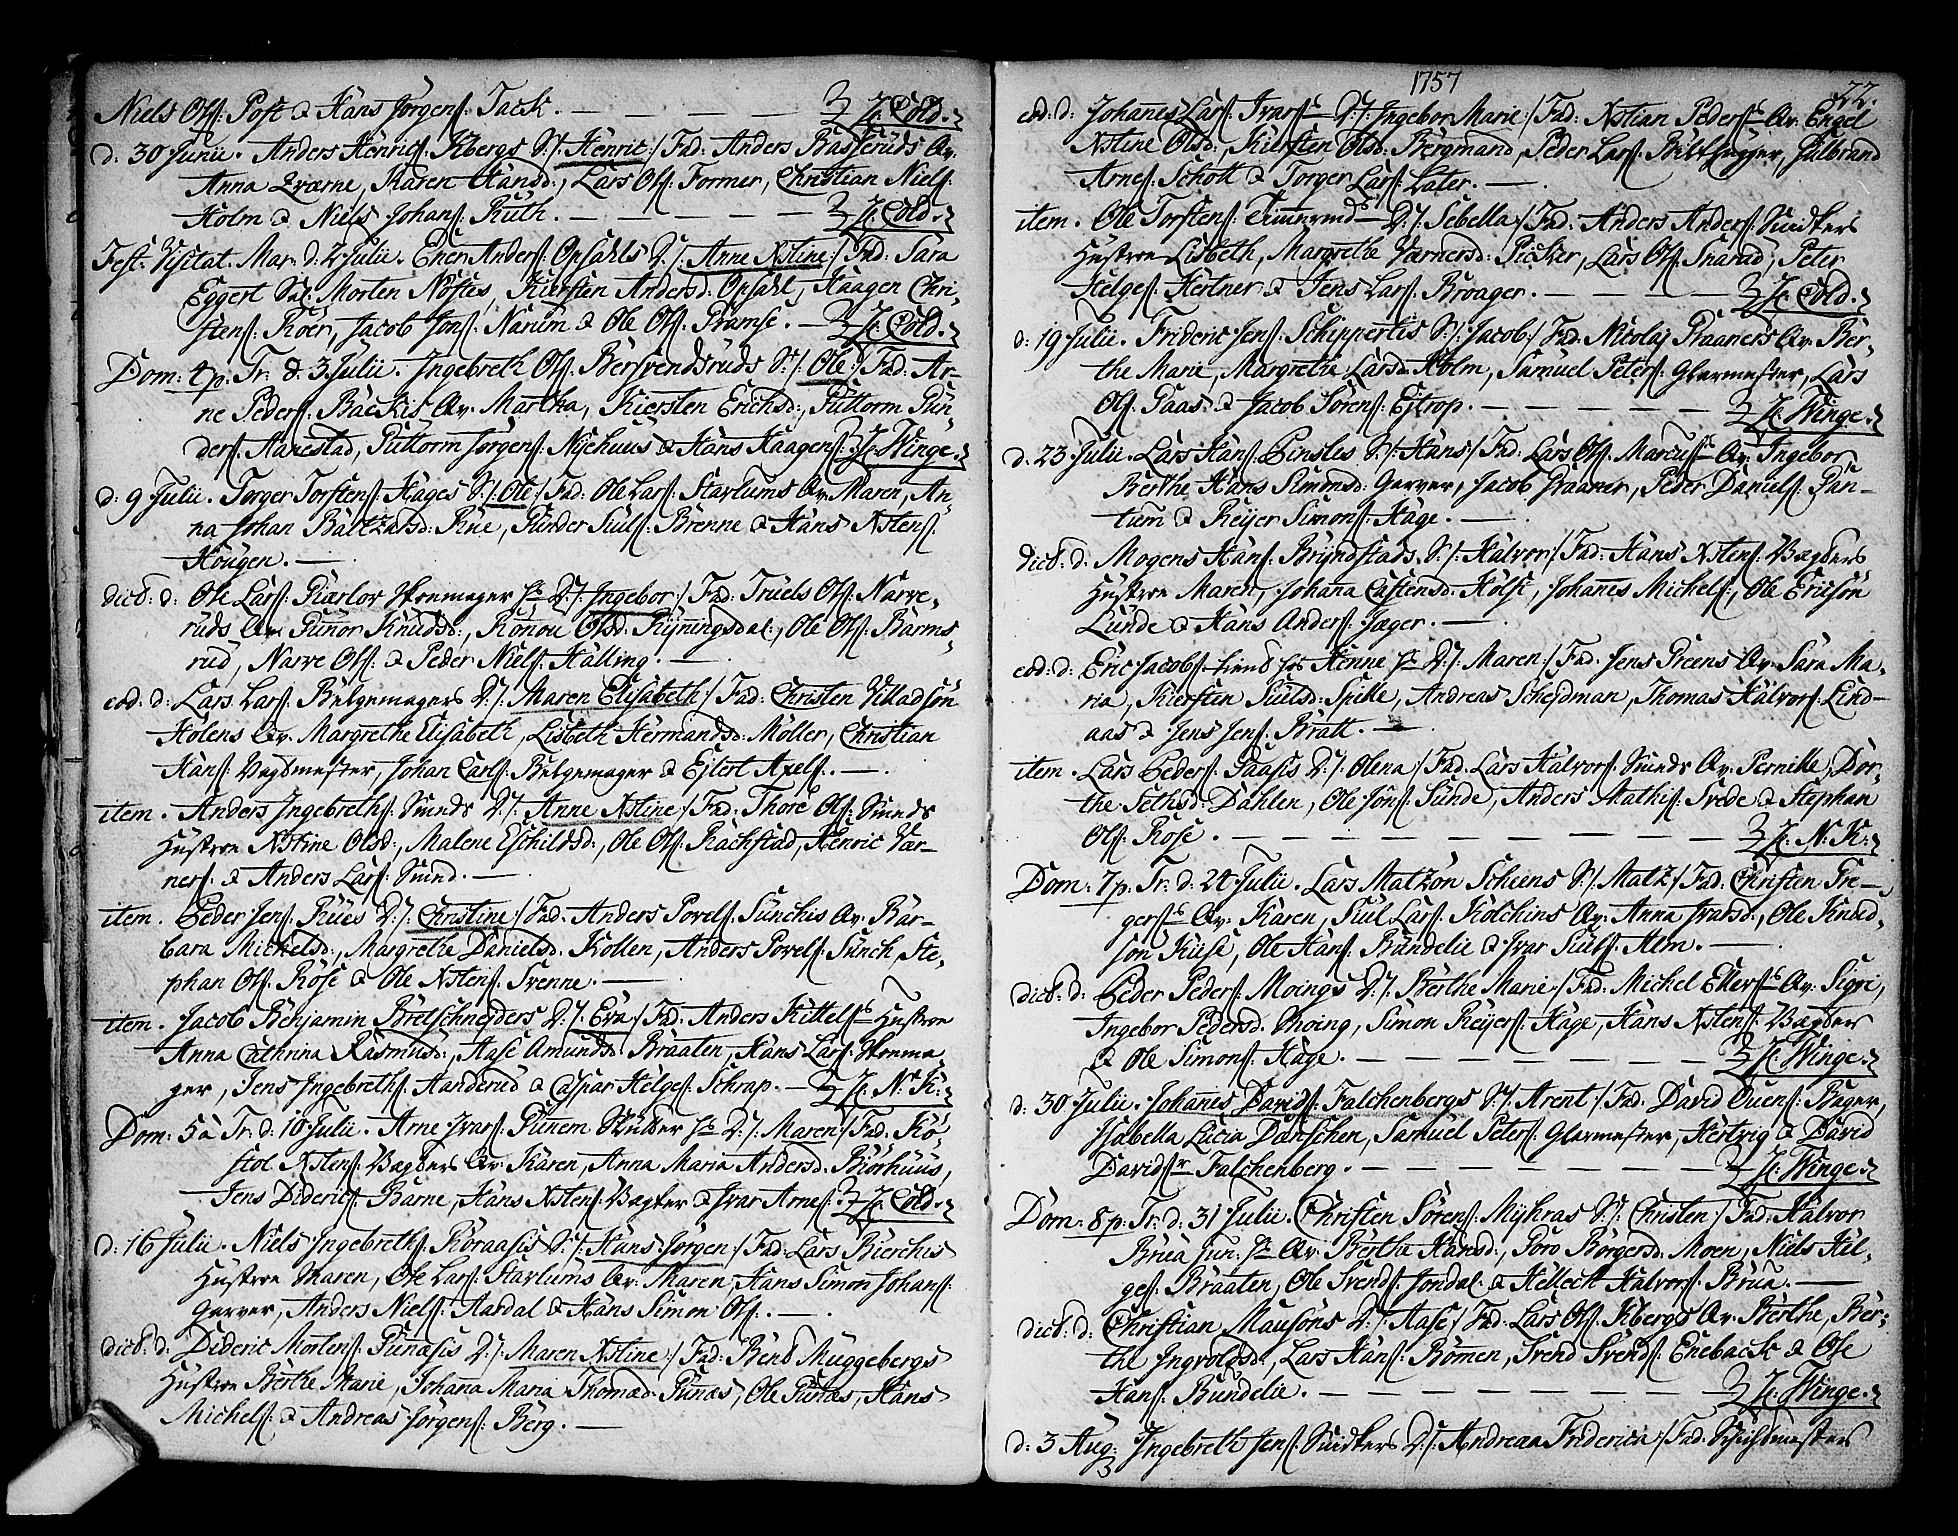 Niels Ols: Post & Hans Jørgens: Tack. — — — — H: Cold.
d: 30 Junii. Anders Henrics: Kbergs S:/: Henric :/ Fad: Anders Basseruds Qv.
Anna Qværne, Karen Hansd:, Lars Ols: Former, Christian Niels:
Holm & Niels Johans: Ruth. — — — — H: Cold.
Fest: Visitat. Mar: d. 2 Julii. Ener Anders: Opsahls D:/: Anne Xstine :/ Fad: Sara
Eggert Sal: Morten Nøstes, Kiersten Andersd: Opsahl, Haagen Chri-
stens: Roer, Jacob Jons: Narum & Ole Ols: Gramse. — H: Cold.
Dom: 4 p: Tr: d: 3 Julii. Ingebreth Ols: Bersvendsruds S:/: Ole :/ Fad: Ar-
ne Peders: Backis Qv. Martha, Kiersten Erichsd:, Guttorm Gun-
ders: Hanestad, Guttorm Jørgens: Nyehuus & Hans Haagens: H: Winge.
d: 9 Julii. Torger Torstens: Hages S:/: Ole :/ Fad: Ole Lars: Starlums Qv. Maren, An-
na Johan Baltzarsd: Rue, Gunder Siuls: Brenne & Hans Xstens:
Hougen. —
dict: d: Ole Lars: Giærlov D:/: Ingebor :/ Fad: Truels Ols: Narve-
ruds Qv. Gunor Knudsd:, Ronou Olsd: Ryningsdal, Ole Ols: Barms-
rud, Narve Ols: & Peder Niels: Halling. —
eod: d: Lars Lars: Belgemagers D:/: Maren Elisabeth :/ Fad: Christen Villadsøn
Holens Qv. Margrethe Elisabeth, Lisbeth Hermandsd: Møller, Christian
Hans: Vagtmester, Johan Carls: Belgemager & Ejlert Axels:. —
item. Anders Ingebreths: Sunds D:/: Anne Xstine :/ Fad: Thore Ols: Sunds
Hustroe Xstine Olsd:, Malene Eschildsd:, Ole Ols: Rachstad, Henric Var-
ners: & Anders Lars: Sund. —
item. Peder Jens: Rues D:/: Christine :/ Fad: Anders Povels: Sunchis Qv. Bar-
bara Michelsd:, Margrethe Danielsd: Kollen, Anders Povels: Sunch, Ste-
phan Ols: Rose & Ole Xstens: Svenne. —
item. Jacob Benjamin Bretschneyders D:/: Eva :/ Fad: Anders Kittels: Hustroe
Anna Cathrina Rasmusd:, Aase Amundsd: Braaten, Hans Lars: Skoma-
ger, Jens Ingebreths: Handerud & Caspar Helges: Schrap. — H: N: K:
Dom: 5 à Tr: d: 10 Julii. Arne Ivars: Gunem D:/: Maren :/ Fad: Kø-
stol Xstens: Vagters Qv. Karen, Anna Maria Andersd: Biørhuus,
Jens Diderics: Barne, Hans Xstens: Vagter & Ivar Arnes: H: Cold.
d: 16 Julii. Niels Ingebreths: Koraasis S:/: Hans Jørgen :/ Fad: Lars Bierchis
Hustroe Maren, Ole Lars: Starlums Qv. Maren, Hans Simon Johans:
Garver, Anders Niels: Aardal & Hans Simon Ols:. —
dict: d: Dideric Mortens: Gunæsis D:/: Maren Xstine :/ Fad: Bent Muggebergs
Hustroe Berthe Marie, Johanna Maria Thomæd: Gunæs, Ole Gunæs, Hans
Michels: & Andreas Jørgens: Berg. —
1757
22.
eod: d: Johanes Lars: Ivars: D:/: Ingebor Marie :/ Fad: Xstian Peders: Qv. Engel
Xstine Olsd:, Kiersten Olsd: Bergmand, Peder Lars: Bilthugger, Gulbrand
Arnes: Schott & Torger Lars: Later. —
item. Ole Torstens: D:/: Sebella :/ Fad: Anders Anders: Snidkers
Hustroe Lisbeth, Margrethe Varnersd: Picker, Lars Ols: Snarad, Peter
Helges: Hertner & Jens Lars: Broager. — — — H: Cold.
d: 19 Julii. Frideric Jens: Schippertis S:/: Jacob :/ Fad: Nicolaj Praaners Qv. Ber-
the Marie, Margrethe Larsd: Holm, Samuel Peters: Glarmester, Lars
Ols: Gaas & Jacob Sørens: Ejtrop. — — — H: Winge.
d. 23 Julii. Lars Hans: Pinslis S:/: Hans :/ Fad: Lars Ols: Marcus: Qv. Ingebor,
Berthe Hans Simonsd: Garver, Jacob Praaner, Peder Daniels: Pan-
tium & Reyer Simons: Hage. —
dict: d: Mogens Hans: Bryndstads S:/: Halvor :/ Fad: Hans Xstens: Vagters
Hustroe Maren, Johana Castensd: Holst, Johanes Michels:, Ole Ericsøn
Lunde & Hans Anders: Jæger. —
eod: d: Eric Jacobs: Henne D:/: Maren :/ Fad: Jens Preens Qv. Sara Ma-
ria, Kiersten Siulsd: Spille, Andreas Schejdman, Thomas Halvors: Lind-
aas & Jens Jens: Bratt. —
item. Lars Peders: Gaasis D:/: Olena :/ Fad: Lars Halvors: Sunds Qv. Pernille, Dor-
the Sethsd: Dahlen, Ole Jons: Sunde, Anders Mathis: Svede & Stephan
Ols: Rose. — — — — H: N: K:
Dom: 7 p: Tr: d: 24 Julii. Lars Matzøn Scheens S:/: Matz :/ Fad: Christen Tre-
gers: Qv. Karen, Siul Lars: Kolchins Qv. Anna Ivarsd:, Ole Knud-
søn Kise, Ole Hans: Bundelie & Ivar Siuls: Alm. —
dict: d: Peder Peders: Moings D:/: Berthe Marie :/ Fad: Michel Ellers: Qv. Sigri,
Ingebor Pedersd: Moing, Simon Reyers: Hage, Hans Xstens: Vagter
& Ole Simons: Hage. — — — H: Winge.
d: 30 Julii. Johanes Davids: Falchenbergs S:/: Arent :/ Fad: David Ouens: Bager,
Isabella Lucia Danschen, Samuel Peters: Glarmester, Hertvig & David
Davids: Falchenberg. — — — H: Winge.
Dom: 8 p: Tr: d: 31 Julii. Christen Sørens: Myhras S:/: Christen :/ Fad: Halvor
Brua jun: Qv. Berthe Hansd:, Goro Børgersd: Moen, Niels Hel-
ges: Braaten, Ole Svends: Jondal & Helleck Halvors: Brua. —
dict: d: Christian Mausøns D:/: Aase :/ Fad: Lars Ols: Kbergs Qv. Berthe, Ber-
the Ingvoldsd:, Lars Hans: Bømen, Svend Svends: Eneback & Ole
Hans: Bundelie. — — — H: Winge.
d: 3 Aug: Ingebreth Jens: Snidkers D:/: Andreaa Friderica :/ Fad: